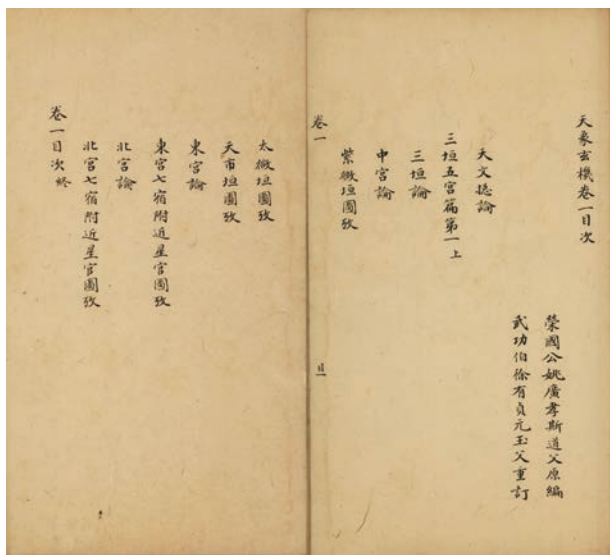 天象玄機卷一目次
榮國公姚廣孝斯道父原編
武功伯徐有貞元玉父重訂
天文總論
三垣五宮篇第一上
三垣論
中宮論
紫微垣圖攷
卷一
目一
太微垣圖攷
天市垣圖攷
東宮論
東宮七宿附近星官圖攷
北宮論
北宮七宿附近星官圖攷
卷一目次終